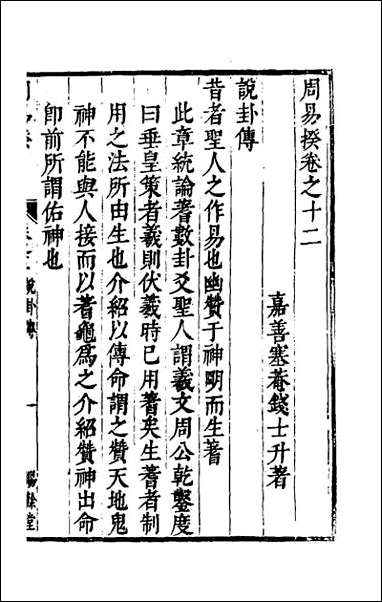 周易揆卷之十二
嘉善塞菴錢士升著
說卦傳
昔者聖人之作易也幽贊于神明而生蓍
此章統論蓍數卦爻聖人謂羲文周公乾鑿度
曰垂皇策者羲則伏羲時已用蓍矣生蓍者制
用之法所由生也介紹以傳命謂之贊天地鬼
神不能與人接而以蓍龜為之介紹贊神出命
卽前所謂佑神也
說卦傳
一